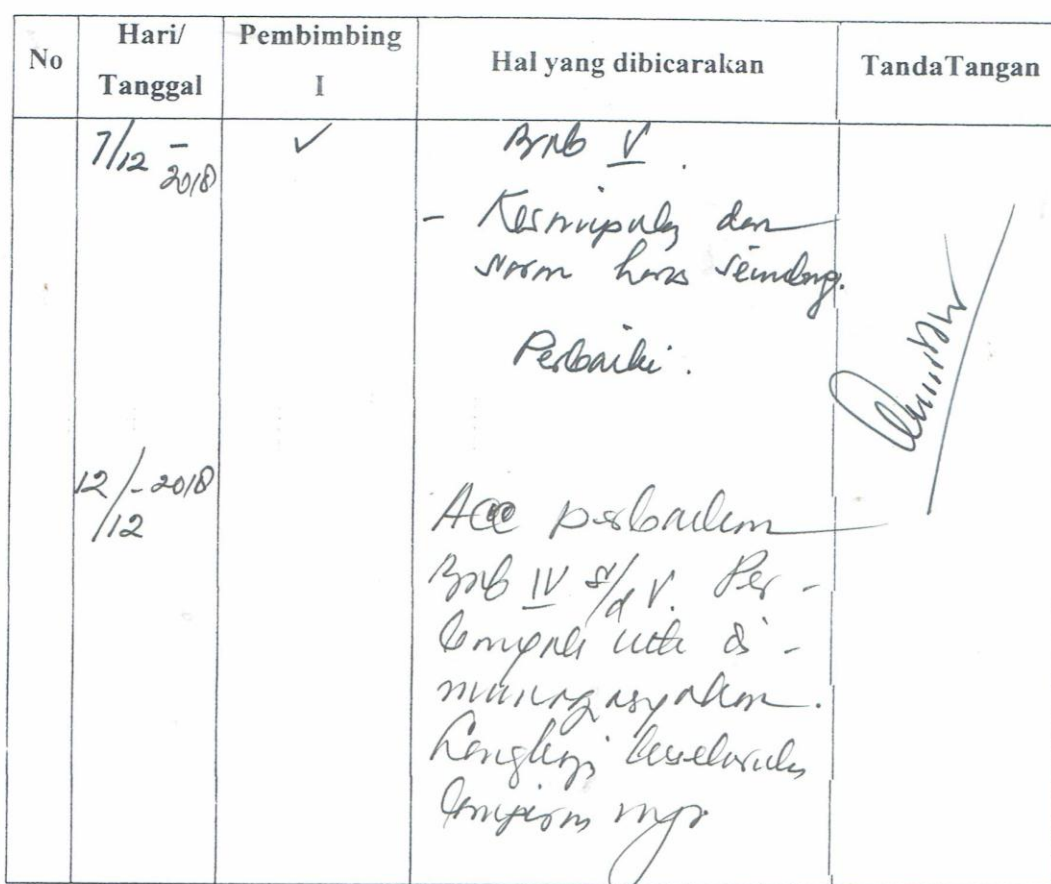 No
Hari/
Tanggal
Pembimbing
I
Hal yang dibicarakan
TandaTangan
7/12 - 2018
✓
Bab V.
- Kesimpulan dan
saran harus seimbang.
Perbaiki.
12/12 - 2018
Acc perbaikan
Bab IV s/d V. Per-
banyak utk di-
munaqasyahkan.
Lengkapi keseluruhan
lampiran nya